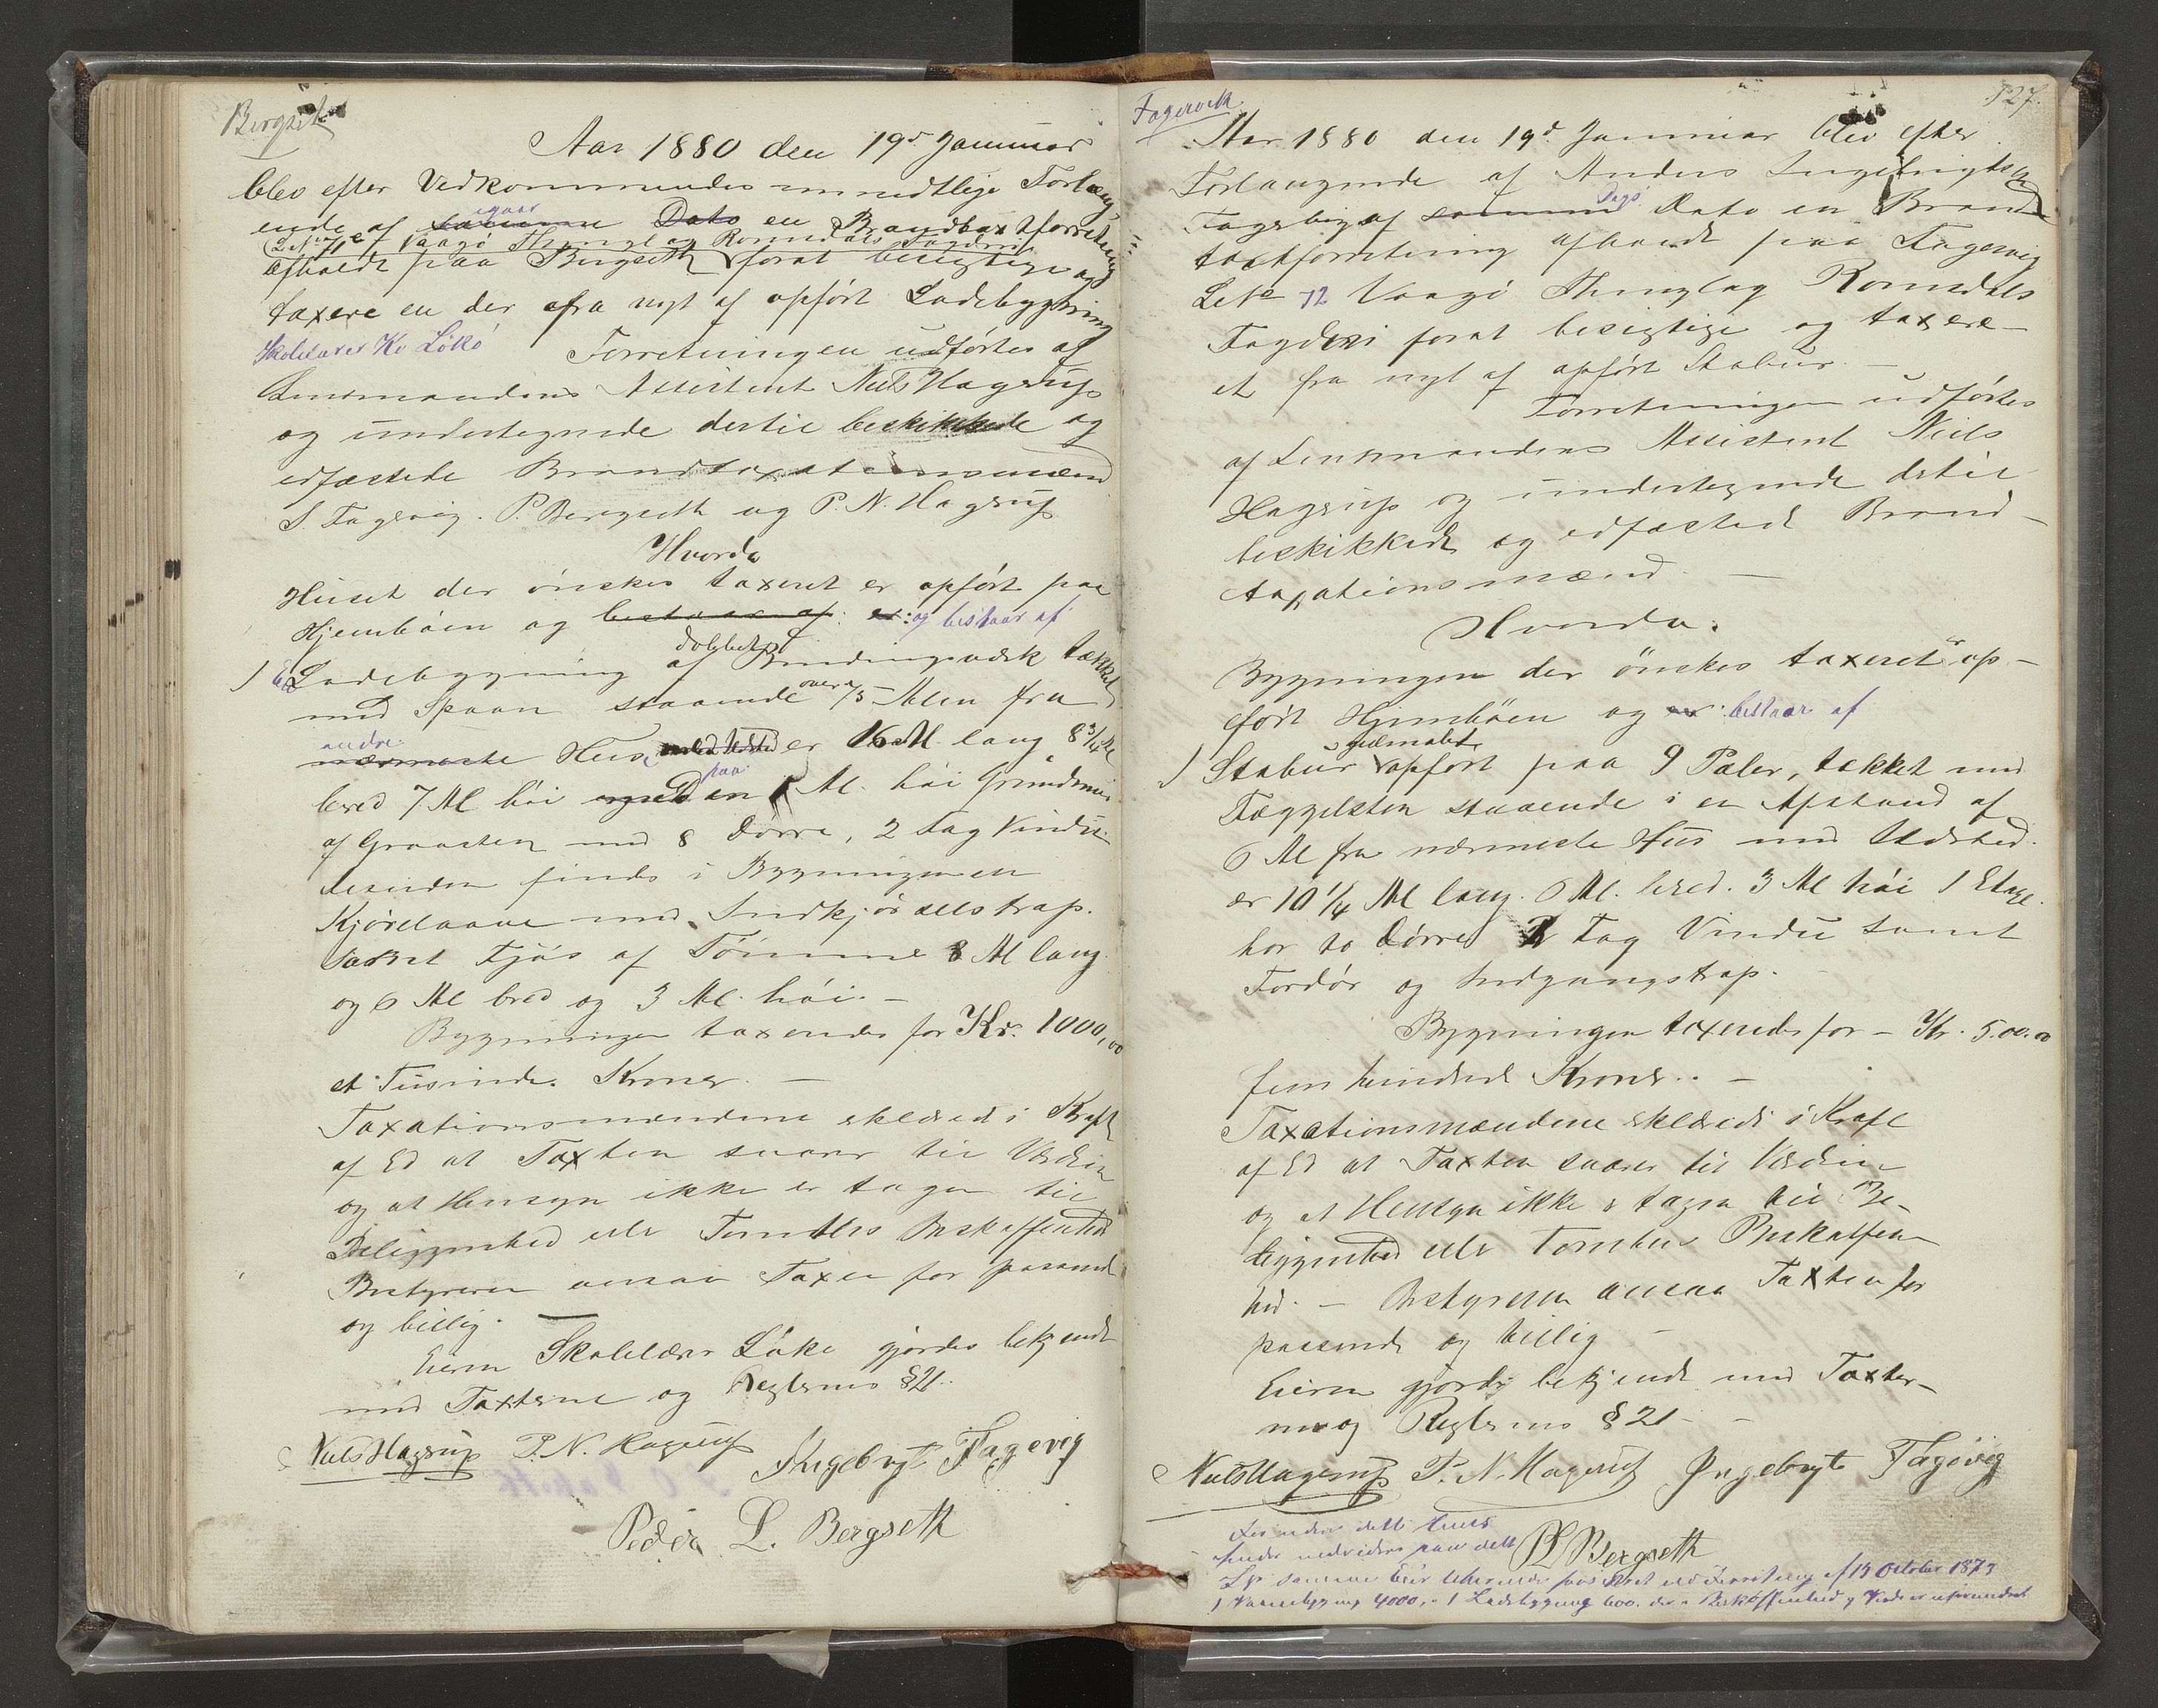 Bergset
Aar 1880 den 19de Januar
blev efter Vedkommendes mundtlige Forlang
ende af samme igaar Dato en Brandtaxtforretning
LNo 71 Vaagö Thinglag Romsdals Fogderi
afholdt paa Bergseth forat besigtige og
taxere en der fra nyt af opfört Ladebygning
Skolelærer Lökö Forretningen udförtes af
Lensmandens Assistent Niels Hagerup
og undertegnede dertil beskikkede og
edfæstede Brandtaxationsmænd
I. Fagervig. P. Bergseth og P. N. Hagerup
Hvorda
Huset der önskes taxeret er opfört paa
Hjemböen og bestaar af: er: og bestaar af
1 En Ladebygning af dobbelt Bindingsværk tækket
med Spaan staaende over 15 Alen fra
andre
nærmeste Hus er 16 Al. lang 8 3/4 Al
bred 7 Al höi paa en 1 Al. höi Grundmur
af Graasten med 8 Dörre, 2 Fag Vindu
desuden findes i Bygningen en
Kjörelaave med Indkjörselstrap.
samt Fjös af Tömmer 8 Al lang
og 6 Al bred og 3 Al. höi. -
Bygningen taxeredes for Kr. 1000,00
et Tusinde Kroner. -
Taxationsmændene erklæred i Kraft
af Ed at Taxten svarer til Værdien
og at Hensyn ikke er tagen til
Beliggenhed eller Tomtens Beskaffenhed
Bestyreren ansaa Taxten for passende
og billig. -
Eieren Skolelærer Löke gjordes bekjendt
med Taxterne og Reglernes § 21.
Niels Hagerup P. N. Hagerup Ingebrigt Fagevig
Peder L. Bergseth
Fagervik
127.
Aar 1880 den 19d Januar blev efter
Forlangende af Anders Ingebrigtsen
Fagervig af samme Dags Dato en Brand
taxtforretning afholdt paa Fagervig
LNo 72 Vaagö Thinglag Romsdals
Fogderi forat besigtige og taxere
et fra nyt af opfört Stabur. -
Forretningen udförtes
af Lensmandens Assistent Niels
Hagerup og undertegnede dertil
beskikkede og edfæstede Brand-
taxationsmænd. -
Hvorda.
Bygningen der önskes taxeret er op-
fört Hjemböen og er bestaar af
1 Stabur gulmalet opfört paa 9 Pæler, tækket med
Taggelsten staaende i en Afstand af
6 Al fra nærmeste Hus med Ildsted.
er 10 1/4 Al lang. 6 Al. bred. 3 Al höi 1 Etage.
har to Dörre 2 Fag Vindu samt
Fordör og Indgangstrap. -
Bygningen taxeredes for - Kr. 500.00
fem hundred Kroner.. -
Taxationsmændene erklærede i Kraft
af Ed at Taxten svarer til Værdien
og at Hensyn ikke er tagen til Be-
liggenhed eller Tomtens Beskaffen-
hed. - Bestyreren ansaa Taxten for
passende og billig -
Eieren gjordes bekjendt med Taxter-
ne og Reglernes § 21 -
Niels Hagerup P. N. Hagerup Ingebrigt Fagevig
PL Bergseth
detti Huus
findes paa dette
samme Eier 19 October 1873
1 Vaaningsbygning 4000, 1 Ladebygning 600. Beskaffenhed og Værdi er uforandret